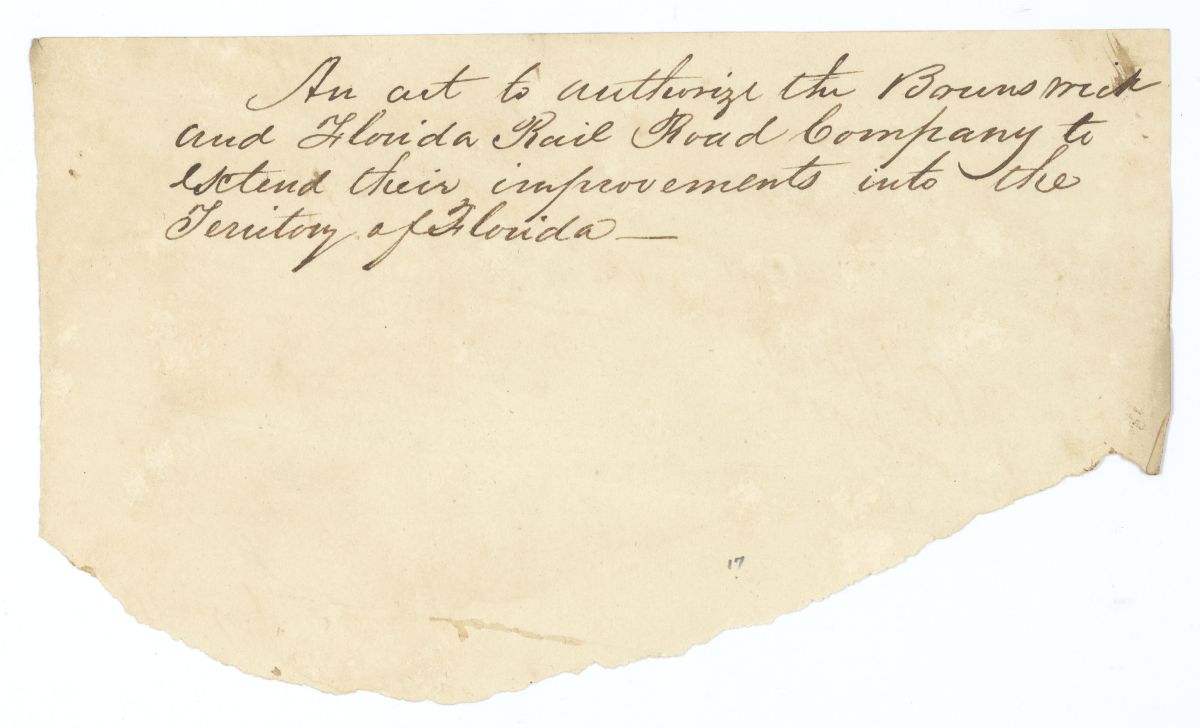 An act to authorize the Brunswick
and Florida Rail Road Company to
extend their improvements into the
Territory of Florida —
17